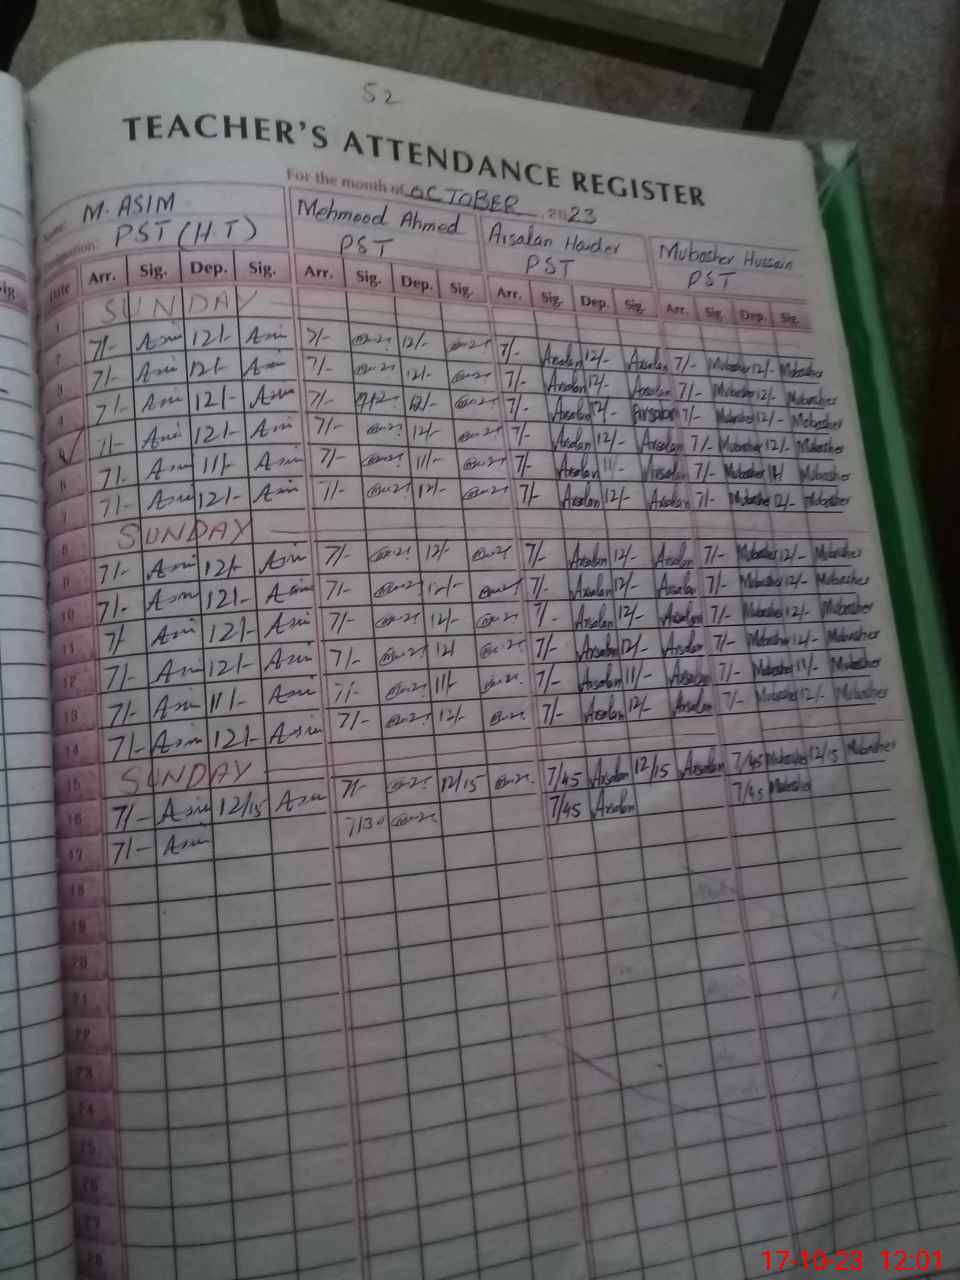 52
TEACHER'S ATTENDANCE REGISTER
For the month of OCTOBER 2023
M. ASIM Mehmood Ahmed Arsalan Haider Mubasher Hussain
PST (H.T) PST PST PST
Date Arr. Sig. Dep. Sig. Arr. Sig. Dep. Sig. Arr. Sig. Dep. Sig. Arr. Sig. Dep. Sig.
1 SUNDAY
2 7/- Asim 12/- Asim 7/- 12/- 7/- Arsalan 12/- Arsalan 7/- Mubasher 12/- Mubasher
3 7/- Asim 12/- Asim 7/- 12/- 7/- Arsalan 12/- Arsalan 7/- Mubasher 12/- Mubasher
4 7/- Asim 12/- Asim 7/- 12/- 7/- Arsalan 12/- Arsalan 7/- Mubasher 12/- Mubasher
7/- Asim 12/- Asim 7/- 12/- 7/- Arsalan 12/- Arsalan 7/- Mubasher 12/- Mubasher
6 7/- Asim 11/- Asim 7/- 11/- 7/- Arsalan 11/- Arsalan 7/- Mubasher 11/- Mubasher
7 7/- Asim 12/- Asim 7/- 12/- 7/- Arsalan 12/- Arsalan 7/- Mubasher 12/- Mubasher
8 SUNDAY
9 7/- Asim 12/- Asim 7/- 12/- 7/- Arsalan 12/- Arsalan 7/- Mubasher 12/- Mubasher
10 7/- Asim 12/- Asim 7/- 12/- 7/- Arsalan 12/- Arsalan 7/- Mubasher 12/- Mubasher
11 7/- Asim 12/- Asim 7/- 12/- 7/- Arsalan 12/- Arsalan 7/- Mubasher 12/- Mubasher
12 7/- Asim 12/- Asim 7/- 12/ 7/- Arsalan 12/- Arsalan 7/- Mubasher 12/- Mubasher
13 7/- Asim 11/- Asim 7/- 11/- 7/- Arsalan 11/- Arsalan 7/- Mubasher 11/- Mubasher
14 7/- Asim 12/- Asim 7/- 12/- 7/- Arsalan 12/- Arsalan 7/- Mubasher 12/- Mubasher
15 SUNDAY
16 7/- Asim 12/15 Asim 7/- 12/15 7/45 Arsalan 12/15 Arsalan 7/45 Mubasher 12/15 Mubasher
17 7/- Asim 7/30 7/45 Arsalan 7/45 Mubasher
18
19
20
21
22
23
24
25
26
27
28
17-10-23 12:01